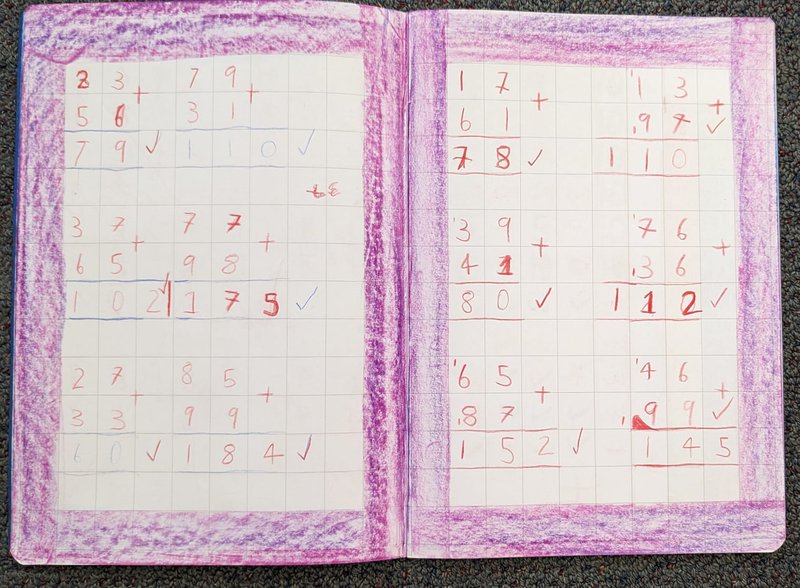 23 + 79 +
56 31
79 ✓ 110 ✓
37 77
65 + 98 +
102 ✓ 175 ✓
27 85
33 + 99 +
60 ✓ 184 ✓
17 13
61 + 97 + ✓
78 ✓ 110
39 76
41 + 36 +
80 ✓ 112 ✓
65 46
87 + 99 + ✓
152 ✓ 145